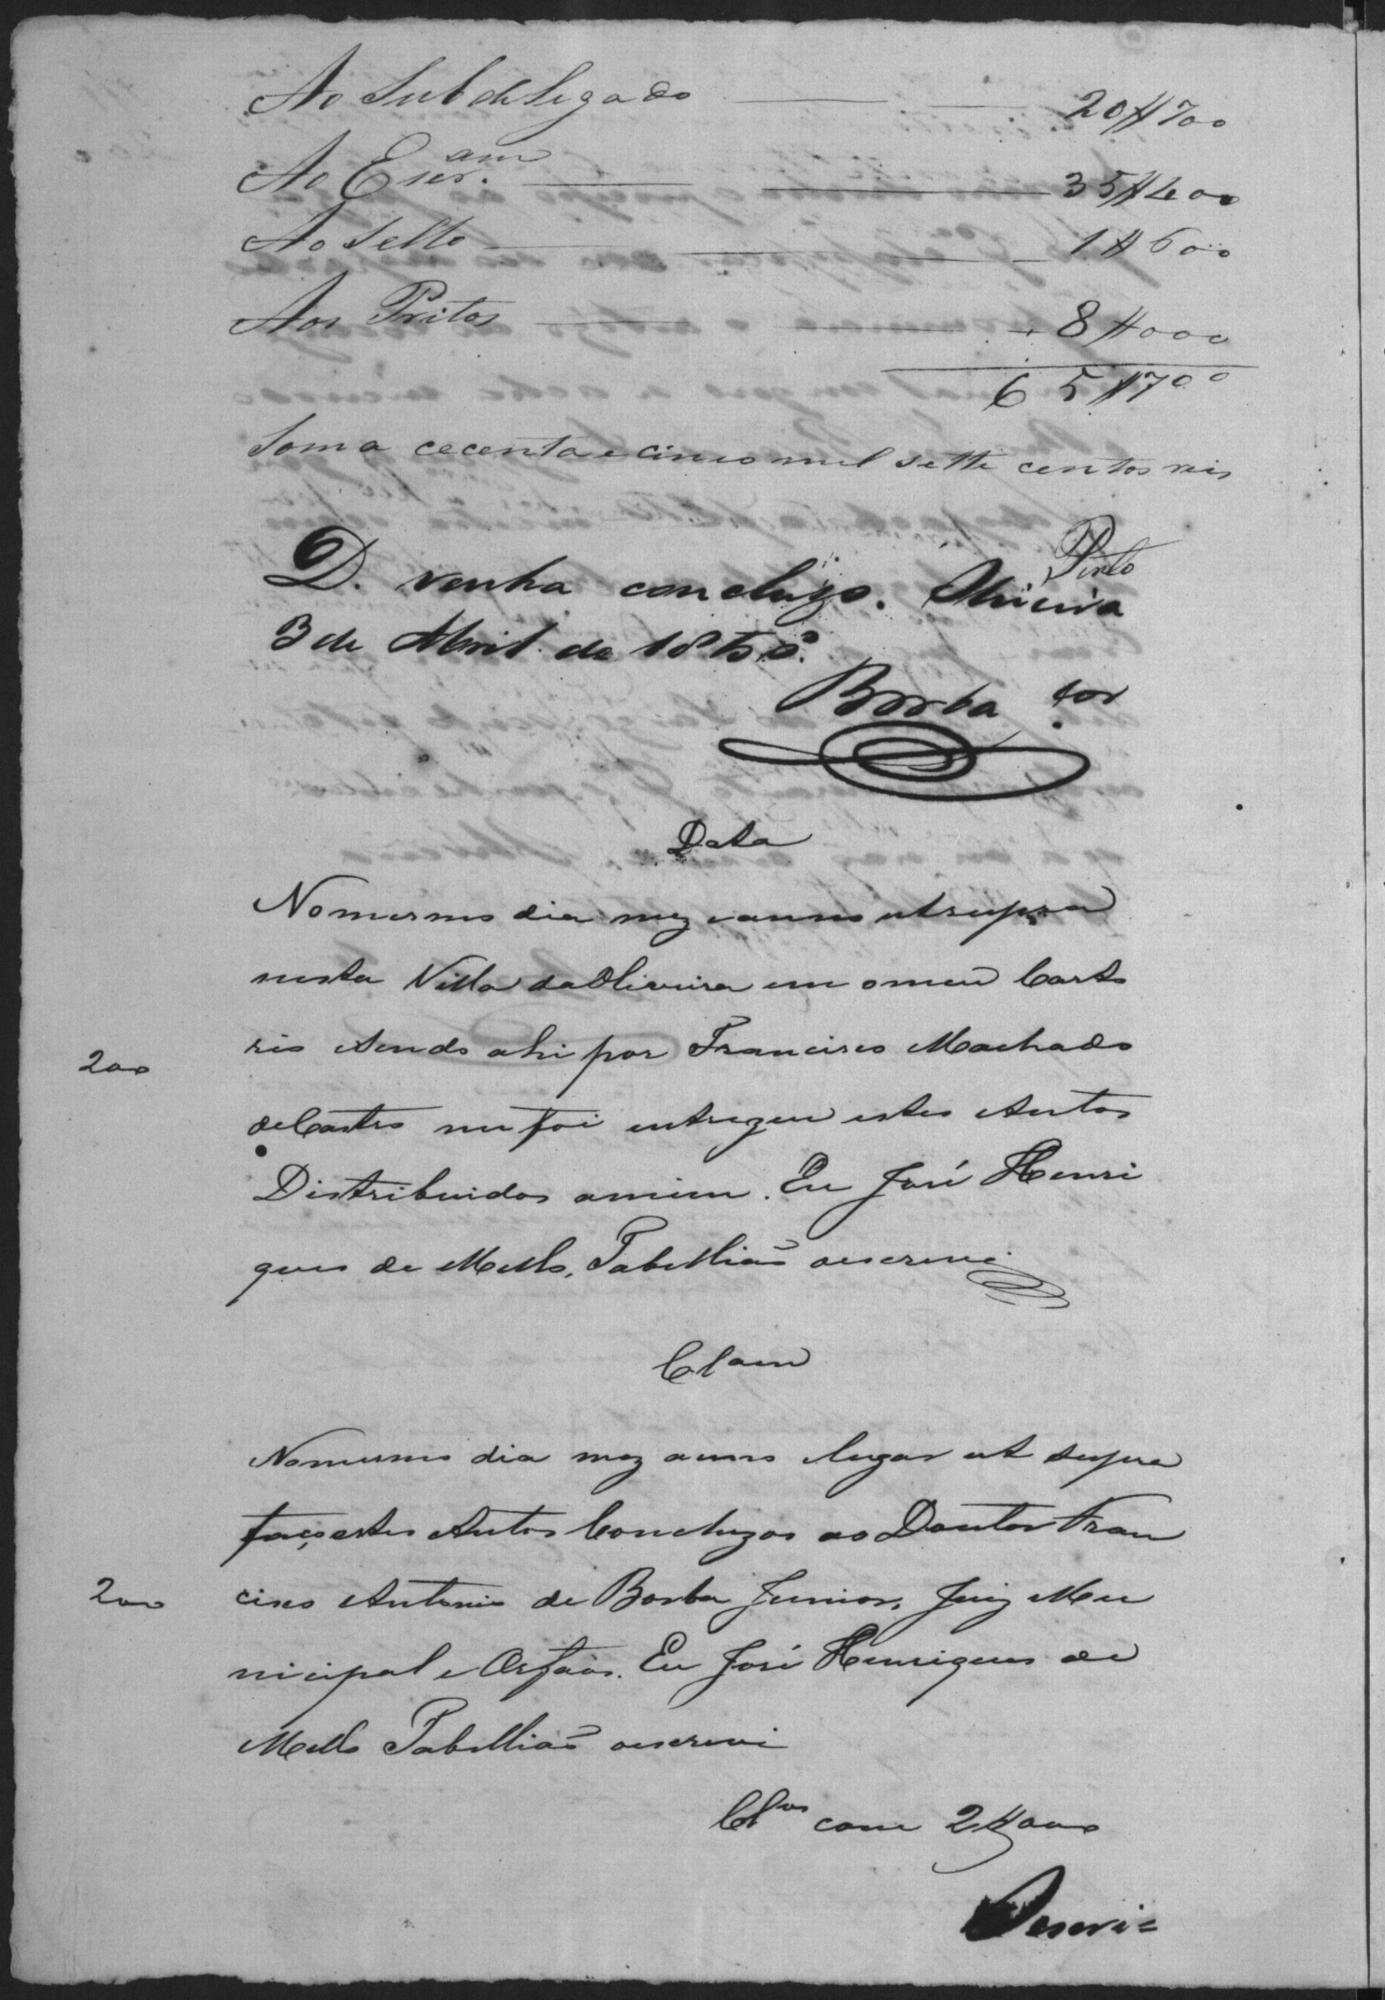 Ao Subdelegado 20$700
Ao Escr.am 35$400
Ao Sello 1$600
Aos Pritos 8$000
65$700
Soma cecenta e cinco mil sette centos reis
Pinto
D. venha concluzo. Oliveira
3 de Abril de 185
Borba Jor
Data
No mesmo dia mez e anno ut supra
nesta Villa da Oliveira em o meu Carto
200
rio sendo ahi por Francisco Machado
de Castro me foi entregue estes Autos
Distribuidos a mim. Eu José Henri
ques de Mello, Tabellião o escrevi
Clam
No mesmo dia mez anno e lugar ut supra
faço estes Autos Concluzos ao Doutor Fran
200
cisco Antonio de Borba Junior, Juiz Mu
nicipal e Orfãos. Eu José Henriques de
Mello Tabellião o escrevi
Clos com 2$000